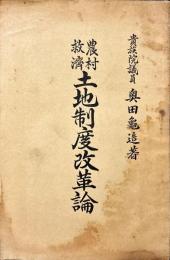 貴族院議員 奥田亀造著
農村救済 土地制度改革論